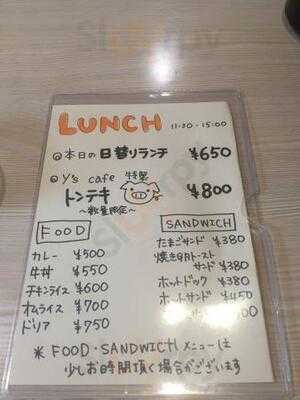 LUNCH 11:30-15:00
◎本日の日替りランチ ¥650
◎Y's cafe 特製
トンテキ ¥800
～数量限定～
FOOD
カレー ¥500
牛丼 ¥550
チキンライス ¥600
オムライス ¥700
ドリア ¥750
SANDWICH
たまごサンド ¥380
焼き肉トースト
サンド ¥380
ホットドック ¥380
ホットサンド ¥450
※ FOOD・SANDWICHメニューは
少しお時間頂く場合がございます